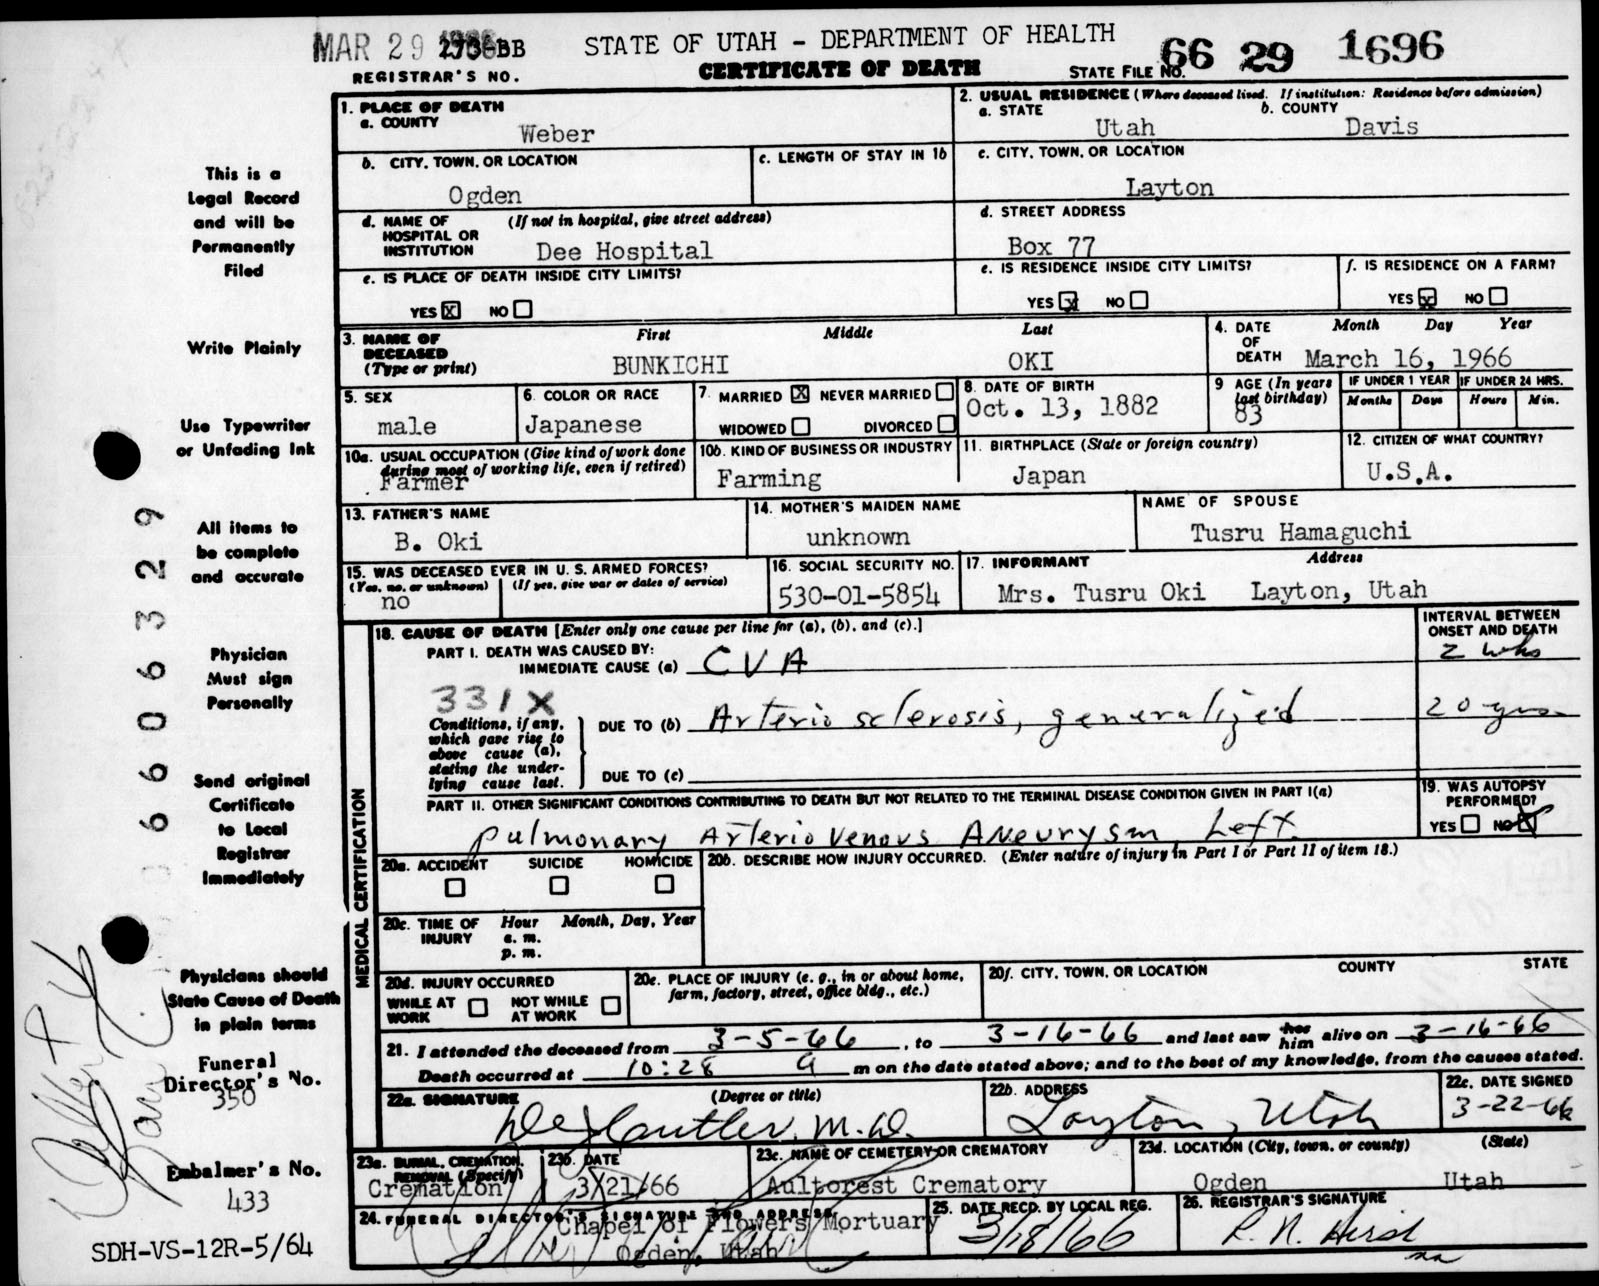 MAR 29 273-BB STATE OF UTAH - DEPARTMENT OF HEALTH 66 29 1696
REGISTRAR'S NO. CERTIFICATE OF DEATH STATE FILE NO.
1. PLACE OF DEATH
a. COUNTY
Weber
2. USUAL RESIDENCE (Where deceased lived. If institution: Residence before admission)
a. STATE b. COUNTY
Utah Davis
b. CITY, TOWN, OR LOCATION
Ogden
c. LENGTH OF STAY IN 1b
c. CITY, TOWN, OR LOCATION
Layton
d. NAME OF HOSPITAL OR INSTITUTION (If not in hospital, give street address)
Dee Hospital
d. STREET ADDRESS
Box 77
e. IS PLACE OF DEATH INSIDE CITY LIMITS?
YES X NO
e. IS RESIDENCE INSIDE CITY LIMITS?
YES X NO
f. IS RESIDENCE ON A FARM?
YES X NO
3. NAME OF DECEASED (Type or print) First Middle Last
BUNKICHI OKI
4. DATE OF DEATH Month Day Year
March 16, 1966
5. SEX
male
6. COLOR OR RACE
Japanese
7. MARRIED X NEVER MARRIED
WIDOWED DIVORCED
8. DATE OF BIRTH
Oct. 13, 1882
9 AGE (In years last birthday)
83
IF UNDER 1 YEAR IF UNDER 24 HRS.
Months Days Hours Min.
10a. USUAL OCCUPATION (Give kind of work done during most of working life, even if retired)
Farmer
10b. KIND OF BUSINESS OR INDUSTRY
Farming
11. BIRTHPLACE (State or foreign country)
Japan
12. CITIZEN OF WHAT COUNTRY?
U.S.A.
13. FATHER'S NAME
B. Oki
14. MOTHER'S MAIDEN NAME
unknown
NAME OF SPOUSE
Tusru Hamaguchi
15. WAS DECEASED EVER IN U. S. ARMED FORCES?
(Yes, no, or unknown) (If yes, give war or dates of service)
no
16. SOCIAL SECURITY NO.
530-01-5854
17. INFORMANT Address
Mrs. Tusru Oki Layton, Utah
MEDICAL CERTIFICATION
18. CAUSE OF DEATH [Enter only one cause per line for (a), (b), and (c).]
INTERVAL BETWEEN ONSET AND DEATH
PART I. DEATH WAS CAUSED BY:
IMMEDIATE CAUSE (a) CVA 2 wks
331X
Conditions, if any, which gave rise to above cause (a), stating the underlying cause last.
DUE TO (b) Arterio sclerosis, generalized 20 yrs
DUE TO (c)
PART II. OTHER SIGNIFICANT CONDITIONS CONTRIBUTING TO DEATH BUT NOT RELATED TO THE TERMINAL DISEASE CONDITION GIVEN IN PART I(a)
Pulmonary Arterio Venous Aneurysm, Left
19. WAS AUTOPSY PERFORMED?
YES NO X
20a. ACCIDENT SUICIDE HOMICIDE
20b. DESCRIBE HOW INJURY OCCURRED. (Enter nature of injury in Part I or Part II of item 18.)
20c. TIME OF INJURY Hour Month, Day, Year
a. m.
p. m.
20d. INJURY OCCURRED
WHILE AT WORK NOT WHILE AT WORK
20e. PLACE OF INJURY (e. g., in or about home, farm, factory, street, office bldg., etc.)
20f. CITY, TOWN, OR LOCATION COUNTY STATE
21. I attended the deceased from 3-5-66, to 3-16-66 and last saw her him alive on 3-16-66
Death occurred at 10:28 a m on the date stated above; and to the best of my knowledge, from the causes stated.
22a. SIGNATURE (Degree or title)
M.D.
22b. ADDRESS
Layton, Utah
22c. DATE SIGNED
3-22-66
23a. BURIAL, CREMATION, REMOVAL (Specify)
Cremation
23b. DATE
3/21/66
23c. NAME OF CEMETERY OR CREMATORY
Aultorest Crematory
23d. LOCATION (City, town, or county) (State)
Ogden Utah
24. FUNERAL DIRECTOR'S SIGNATURE AND ADDRESS
Chapel of Flowers Mortuary
Ogden, Utah
25. DATE RECD. BY LOCAL REG.
3/18/66
26. REGISTRAR'S SIGNATURE
R. N. Hirst
This is a
Legal Record
and will be
Permanently
Filed
Write Plainly
Use Typewriter
or Unfading Ink
All items to
be complete
and accurate
Physician
Must sign
Personally
Send original
Certificate
to Local
Registrar
Immediately
Physicians should
State Cause of Death
in plain terms
Funeral
Director's No.
350
Embalmer's No.
433
SDH-VS-12R-5/64
66 06329